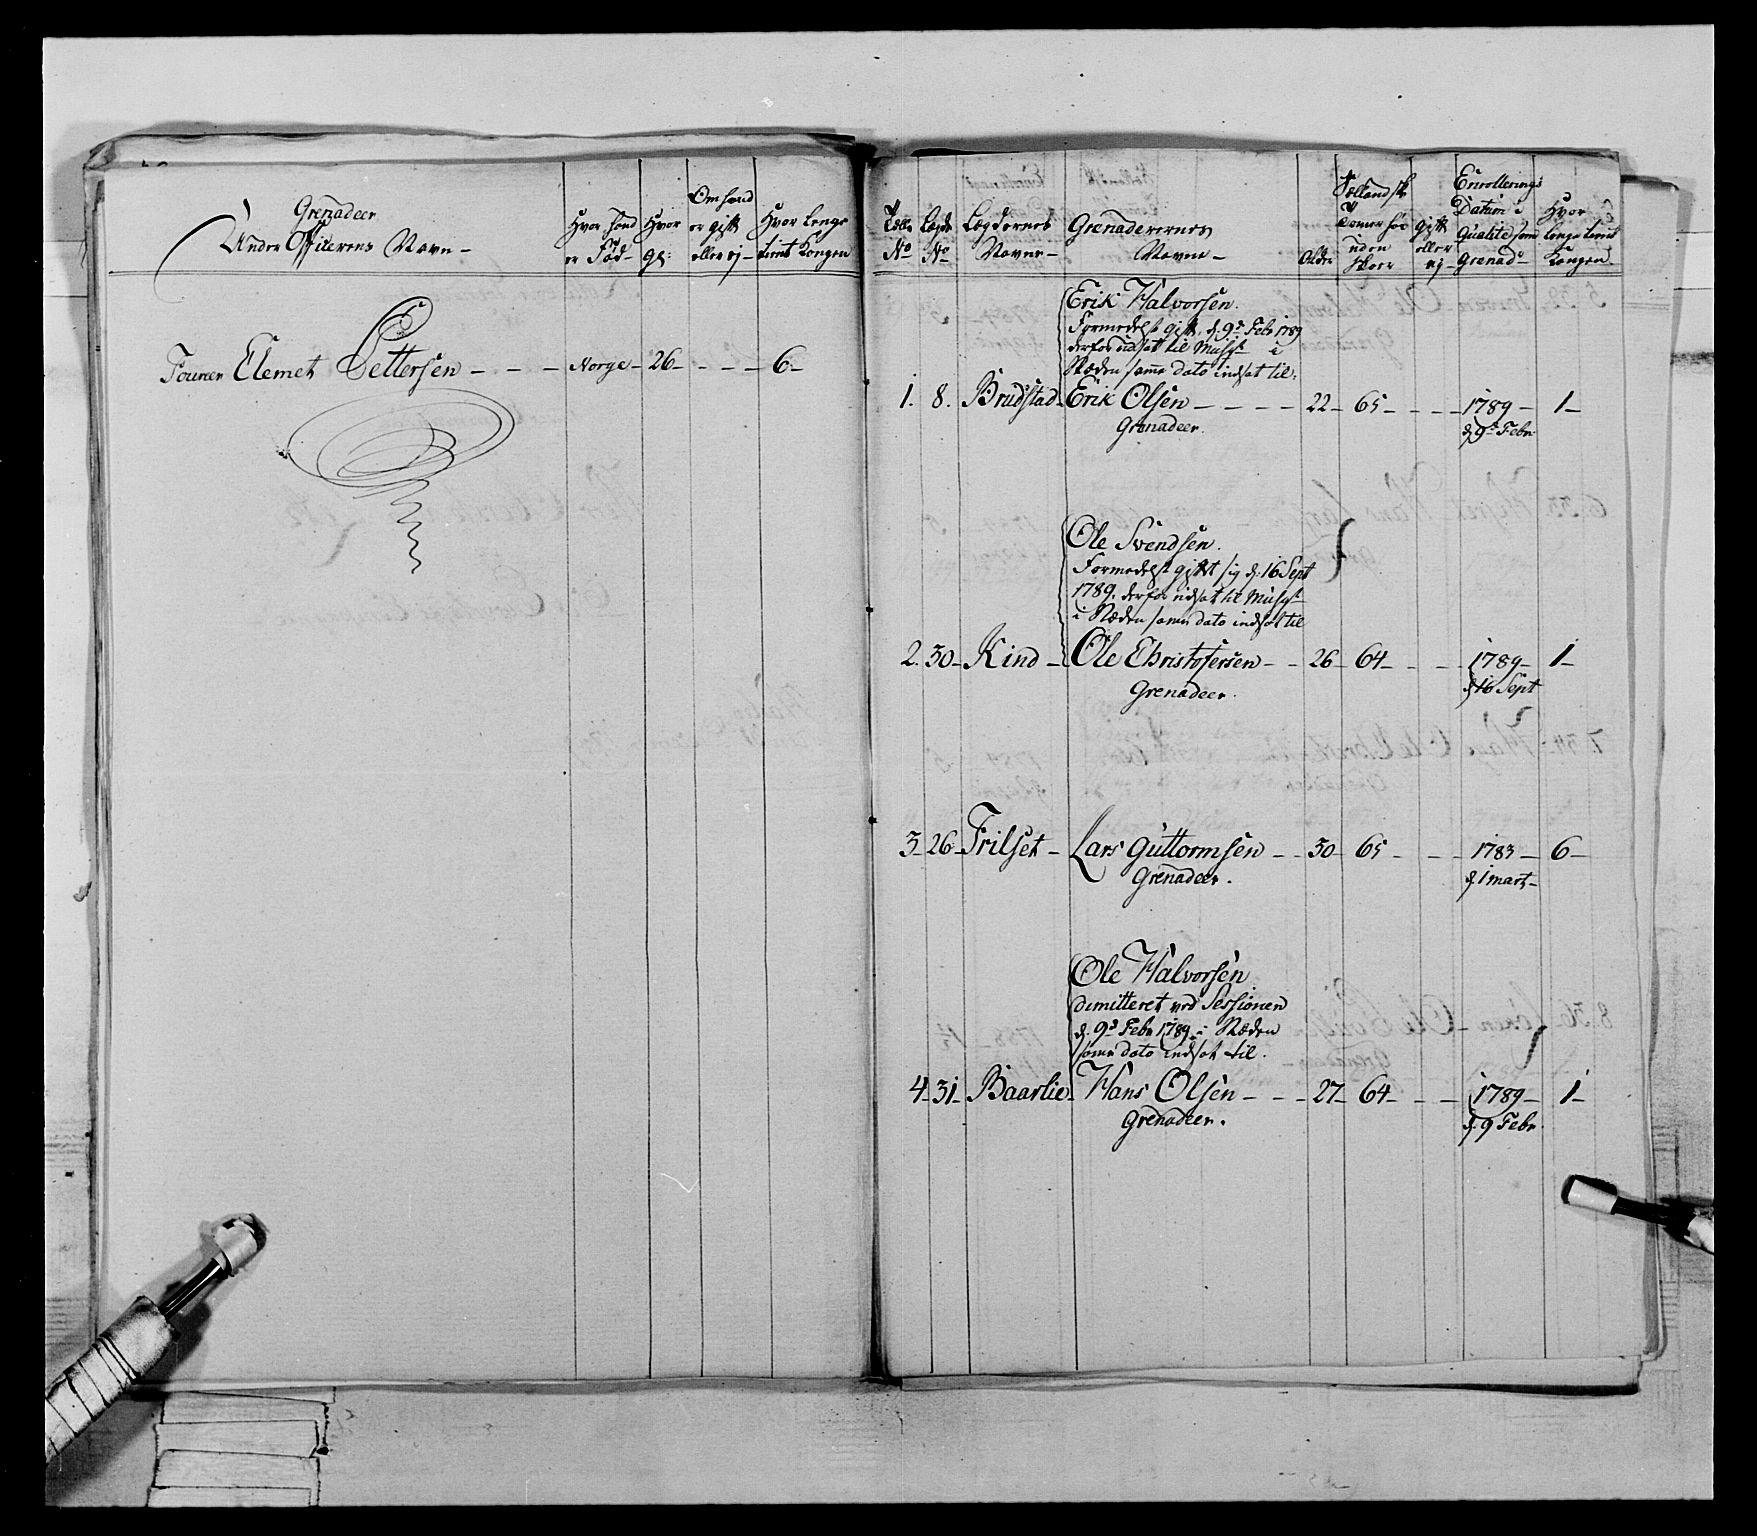 Grenadeer
Under Officerens Navn
Hvor hand er Fød
Hvor gl:
Om hand er gift eller ej
Hvor Lenge tient Kongen
Foureer Clemet Pettersen - - - Norge - 26 - - - - 6 -
No
Lægds No
Lægdernes Navne
Grenaderernes Navne
Alder
uden Skoe
gift eller ej
Enrollerings Datum i Qualite som Grenad:
Hvor lenge tient Kongen
Erik Halvorsen.
Formedelst gift, d: 9d Febr 1789
derfor udsat til Musqt i
Ræden samme dato indsat til:
1. 8. Brudstad - Erik Olsen - - - - 22 - 65 - - - 1789 - 1 -
Grenadeer. d: 9d Febr:
Ole Svendsen.
Formedelst giftet sig d: 16 Sept
1789. derfor udsat til Musqt
i Ræden samme dato indsat til
2. 30 - Kind - Ole Christofersen - - 26 - 64 - - - 1789 - 1 -
Grenadeer. d: 16 Sept
3 - 26 - Frilset - Lars Guttormsen - - 30 - 65 - - - 1783 - 6 -
Grenadeer. d: 1 mart -
Ole Halvorsen
dimitteret ved Sessionen
d: 9d Febr 1789 i Ræden
samme dato indsat til.
4 - 31 - Baarlie - Hans Olsen - - - 27 - 64 - - - 1789 - 1 -
Grenadeer. d: 9 Febr.